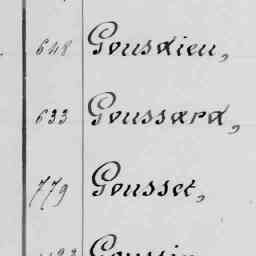 648 Gousdieu,
633 Goussard,
779 Gousset,
Goussin